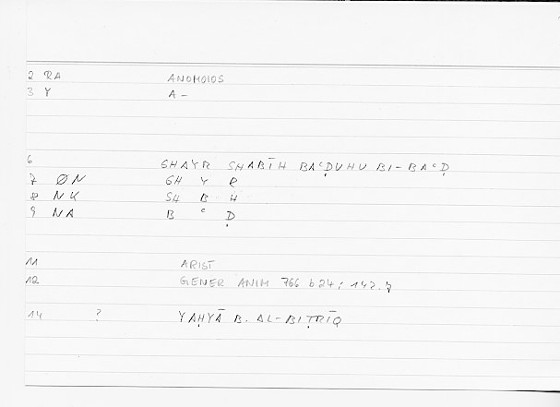 2 RA ANOMOIOS
3 Y A-
6 GHAYR SHABĪH BAʿḌUHU BI-BAʿḌ
7 ØN GH Y R
8 NK SH B H
9 NA B ʿ Ḍ
11 ARIST
12 GENER ANIM 766 b24; 142.7
14 ? YAḤYĀ B. AL-BIṬRĪQ